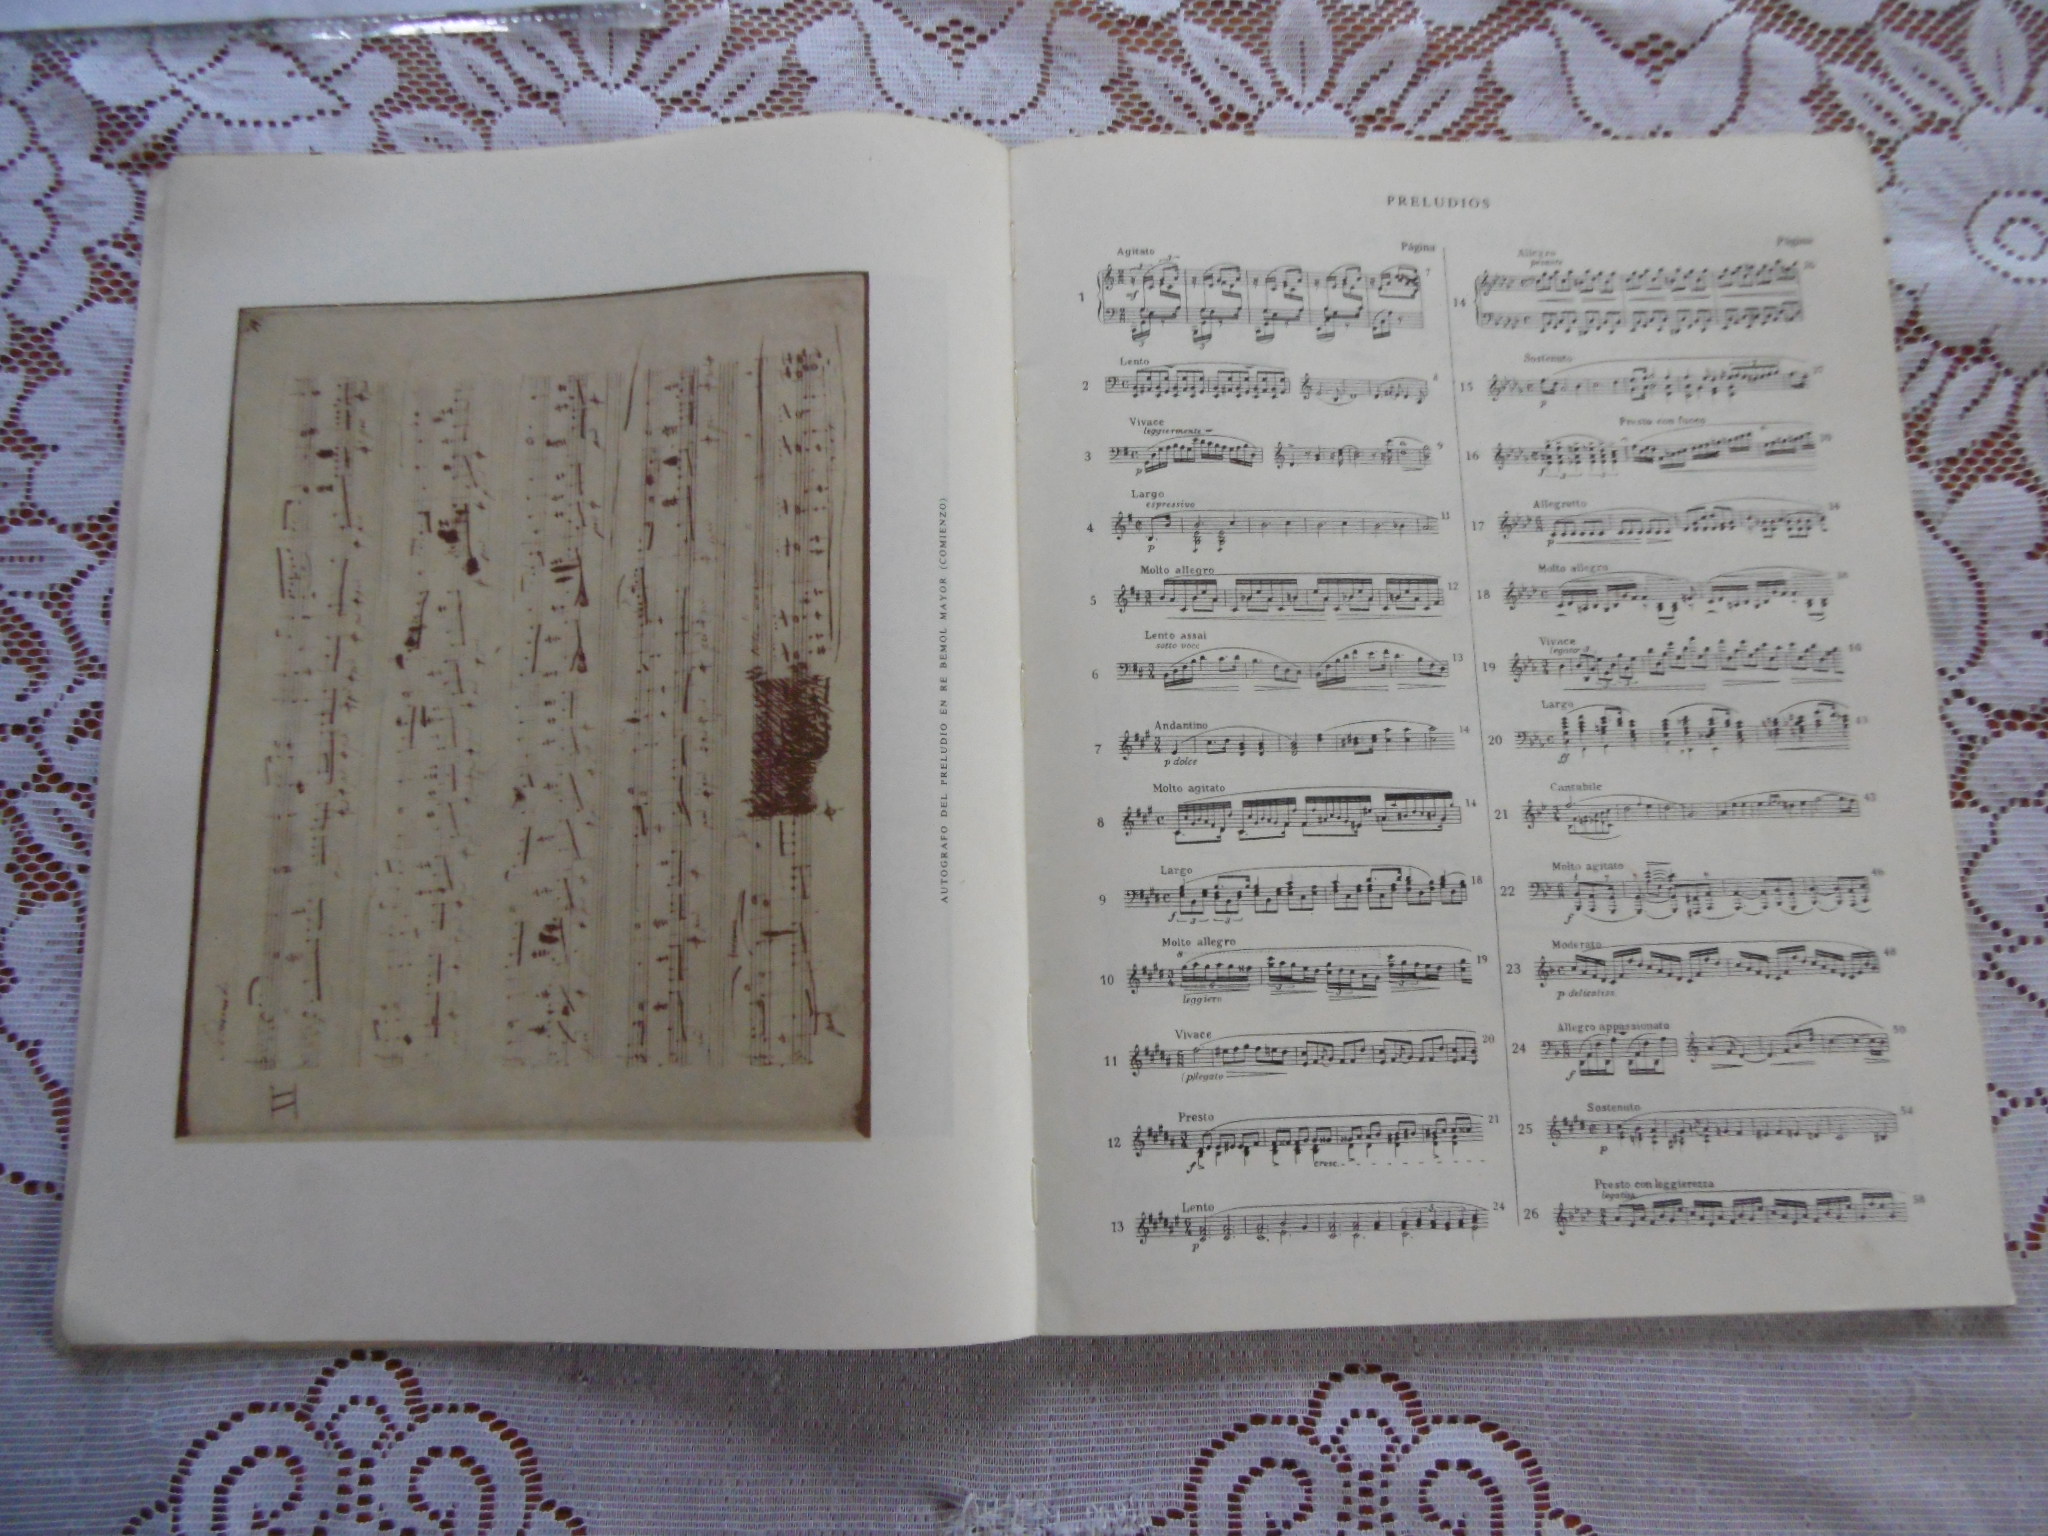 AUTOGRAFO DEL PRELUDIO EN RE BEMOL MAYOR (COMIENZO)
II
PRELUDIOS
Página
Agitato
mf
1
7
Lento
2
Vivace
leggiermente
p
3
9
Largo
espressivo
p
4
11
Molto allegro
5
12
Lento assai
sotto voce
6
13
Andantino
p dolce
7
14
Molto agitato
8
14
Largo
f
9
18
Molto allegro
leggiero
10
19
Vivace
(p)legato
11
20
Presto
f
cresc.
12
21
Lento
p
13
24
Página
Allegro
pesante
14
Sostenuto
p
15
Presto con fuoco
f
16
Allegretto
p
17
Molto allegro
18
Vivace
legato
19
Largo
ff
20
Cantabile
21
Molto agitato
f
22
46
Moderato
p delicatiss.
23
48
Allegro appassionato
f
24
50
Sostenuto
p
25
54
Presto con leggierezza
legatiss.
26
58